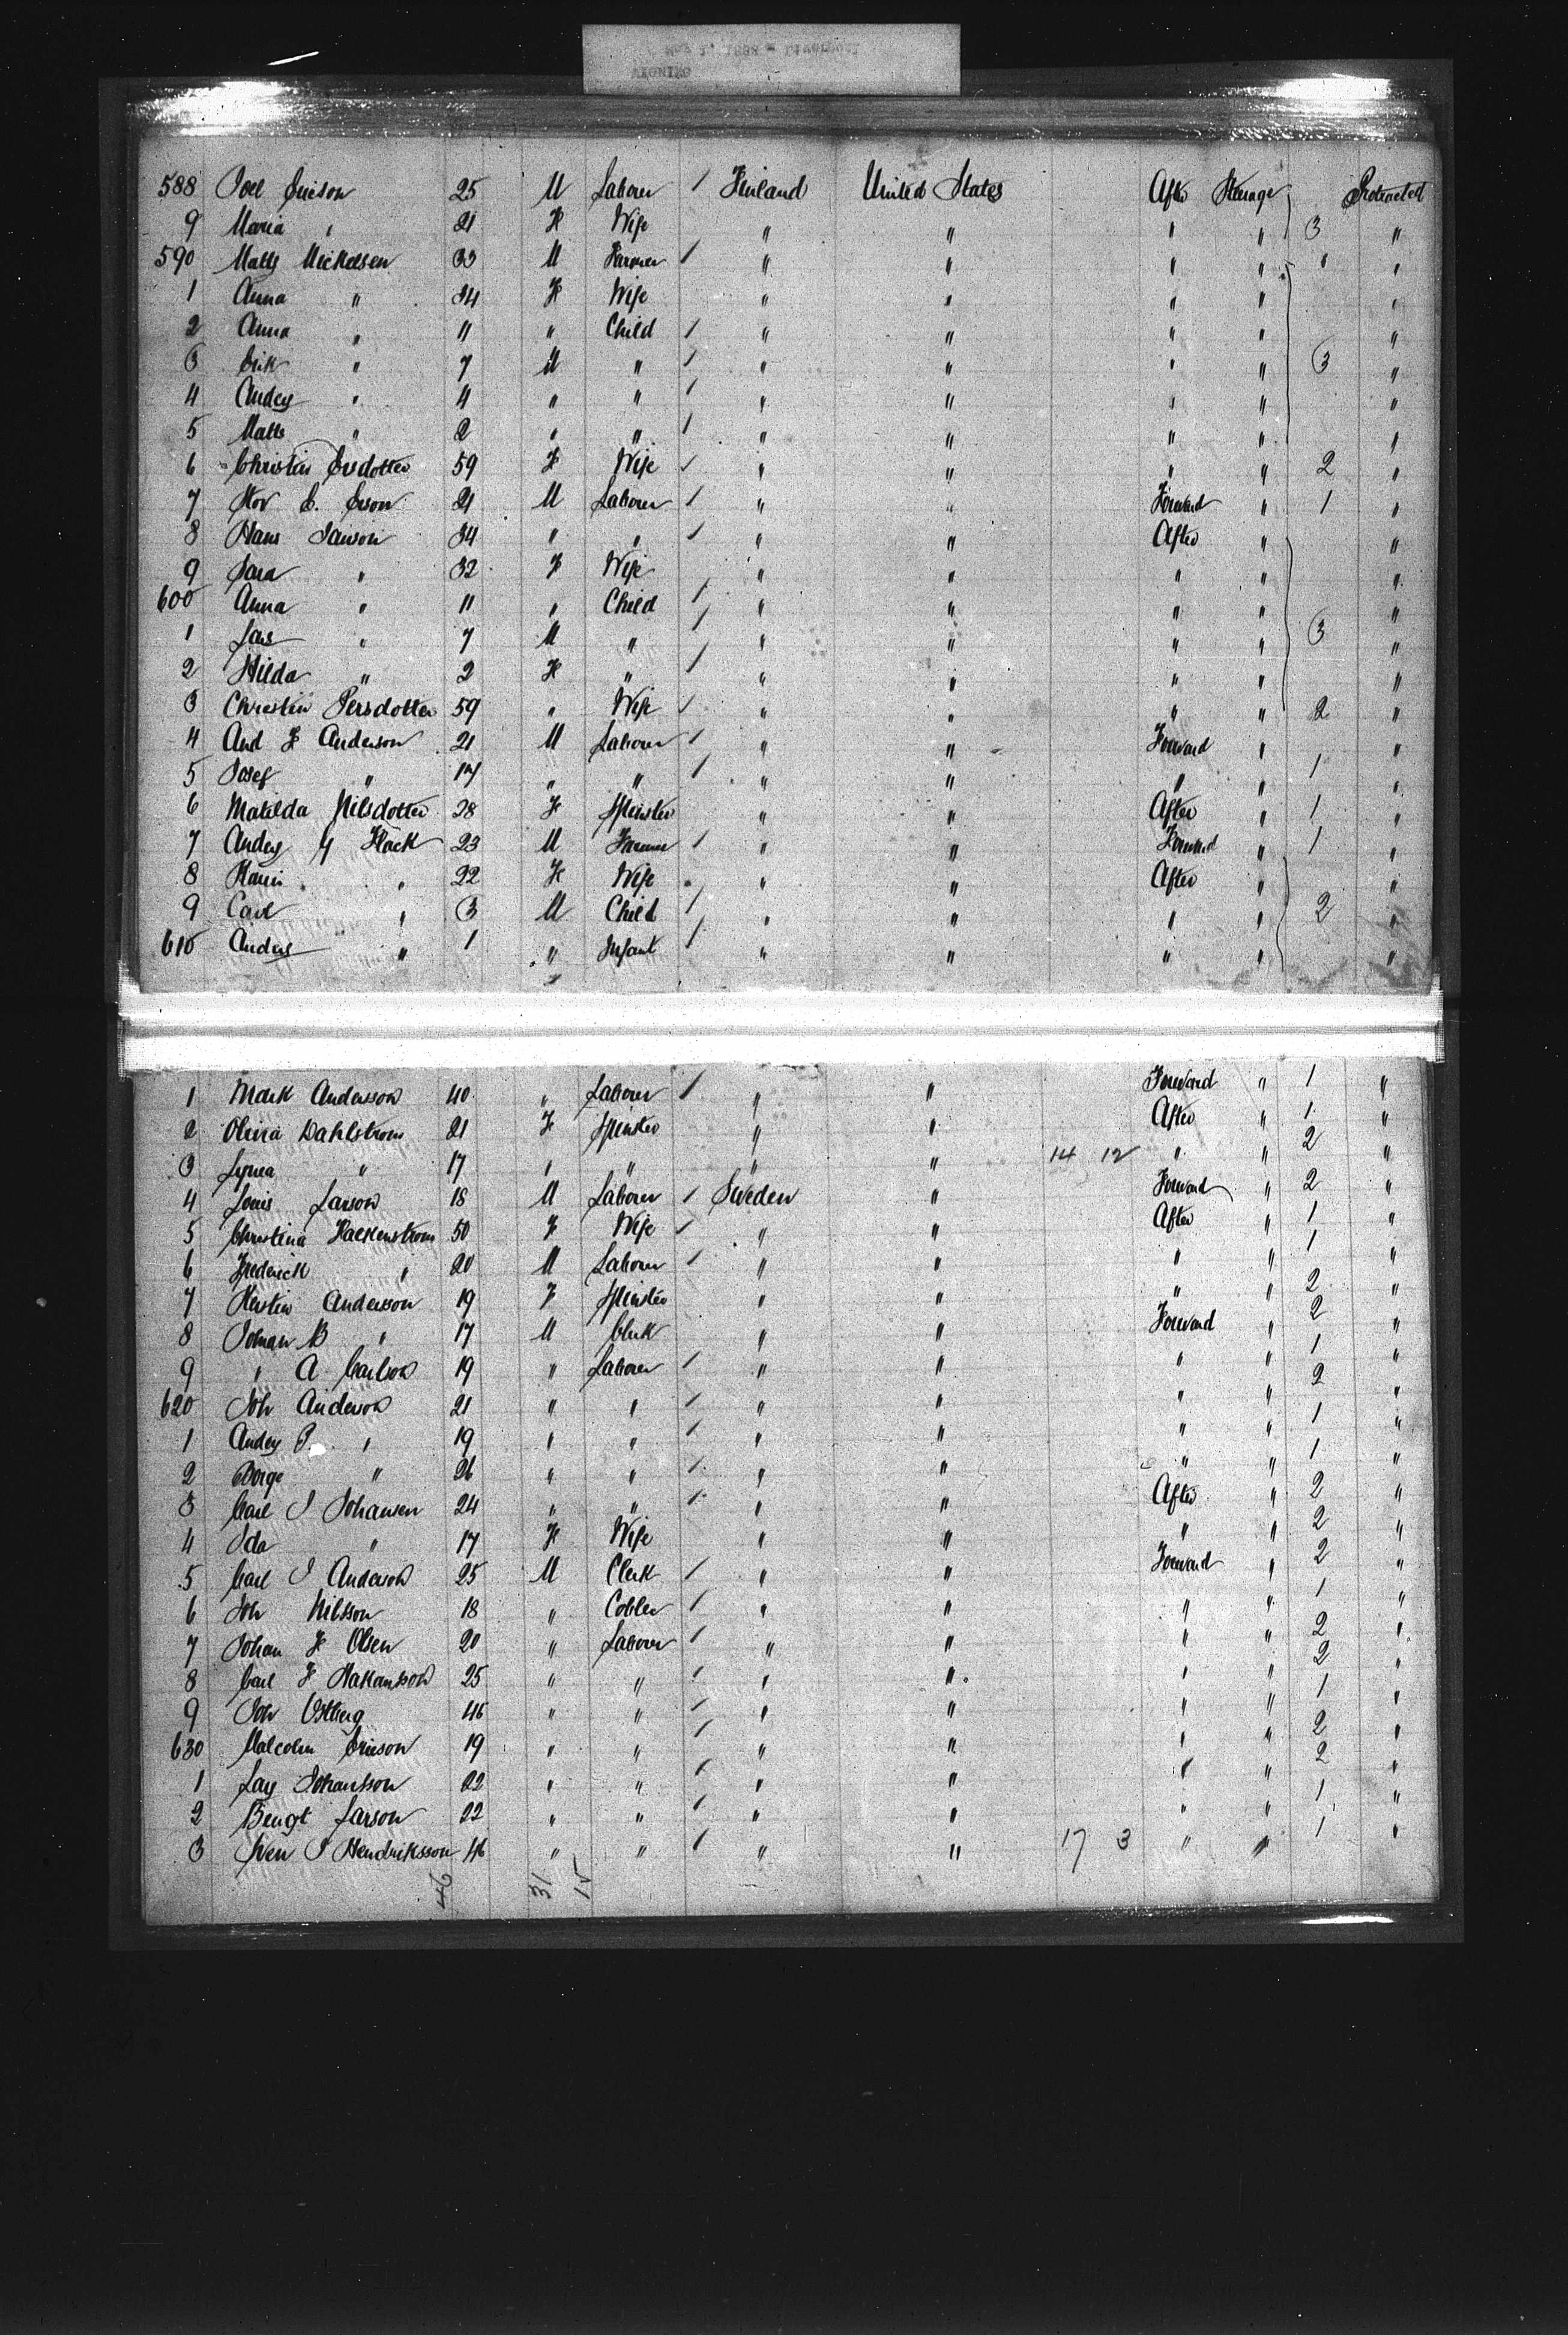 588 Joel Ericson 25 M Laborer / Finland United States After Steerage Protracted
9 Maria " 21 F Wife " " " " 3 "
590 Matts Mickelsen 33 M Farmer / " " " " " "
1 Anna " 34 F Wife " " " " "
2 Anna " 11 " Child / " " " " "
3 Erik " 7 M " / " " " " 3 "
4 Anders " 4 " " / " " " " "
5 Matts " 2 " " / " " " " "
6 Christin 59 F Wife / " " " " 2 "
7 E. Erson 21 M Laborer / " " Forward " 1 "
8 Hans 34 " " / " " After " "
9 Sara " 32 F Wife " " " " "
600 Anna " 11 " Child / " " " " "
1 Lars " 7 M " / " " " " 3 "
2 Hilda " 2 F " / " " " " "
3 Christin Persdotter 59 " Wife / " " " " 2 "
4 And F Anderson 21 M Laborer / " " Forward " "
5 Josef " 17 " " / " " " " 1 "
6 Matilda Nilsdotter 28 F Spinster " " After " 1 "
7 Anders G Flack 23 M Farmer / " " Forward " 1 "
8 " 22 F Wife " " After " "
9 Carl " 3 M Child / " " " " 2 "
610 Anders " 1 " Infant / " " " " "
1 Mark Andersson 40 " Laborer / " " Forward " 1 "
2 Olivia Dahlstrom 21 F Spinster " " After " 1 "
3 " 17 " " " " 14 12 " " 2 "
4 Louis Larson 18 M Laborer / Sweden " Forward " 2 "
5 Christina 50 F Wife / " " After " 1 "
6 Frederick " 20 M Laborer / " " " " 1 "
7 Kerstin Andersson 19 F Spinster " " " " 2 "
8 Johan B " 17 M Clerk " " Forward " 2 "
9 " A Carlson 19 " Laborer / " " " " 1 "
620 Joh Anderson 21 " " / " " " " 2 "
1 Anders P. " 19 " " / " " " " 1 "
2 " 26 " " / " " " " 1 "
3 Carl J Johansen 24 " " / " " After " 2 "
4 Ida " 17 F Wife " " " " 2 "
5 Carl J Anderson 25 M Clerk / " " Forward " 2 "
6 Joh Nilsson 18 " Cobler / " " " " 1 "
7 Johan F Olsen 20 " Laborer / " " " " 2 "
8 Carl F Hakansson 25 " " / " " " " 2 "
9 Joh Ostberg 46 " " / " " " " 1 "
630 Malcolm Ericson 19 " " / " " " " 2 "
1 Lars Johansson 22 " " / " " " " 2 "
2 Bengt Larson 22 " " / " " " " 1 "
3 Sven J Hendriksson 46 " " / " " 17 3 " " 1 "
46 31 15